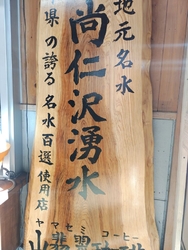 地元名水
尚仁沢湧水
県の誇る名水百選使用店
ヤマセミ コーヒー
山翡翠